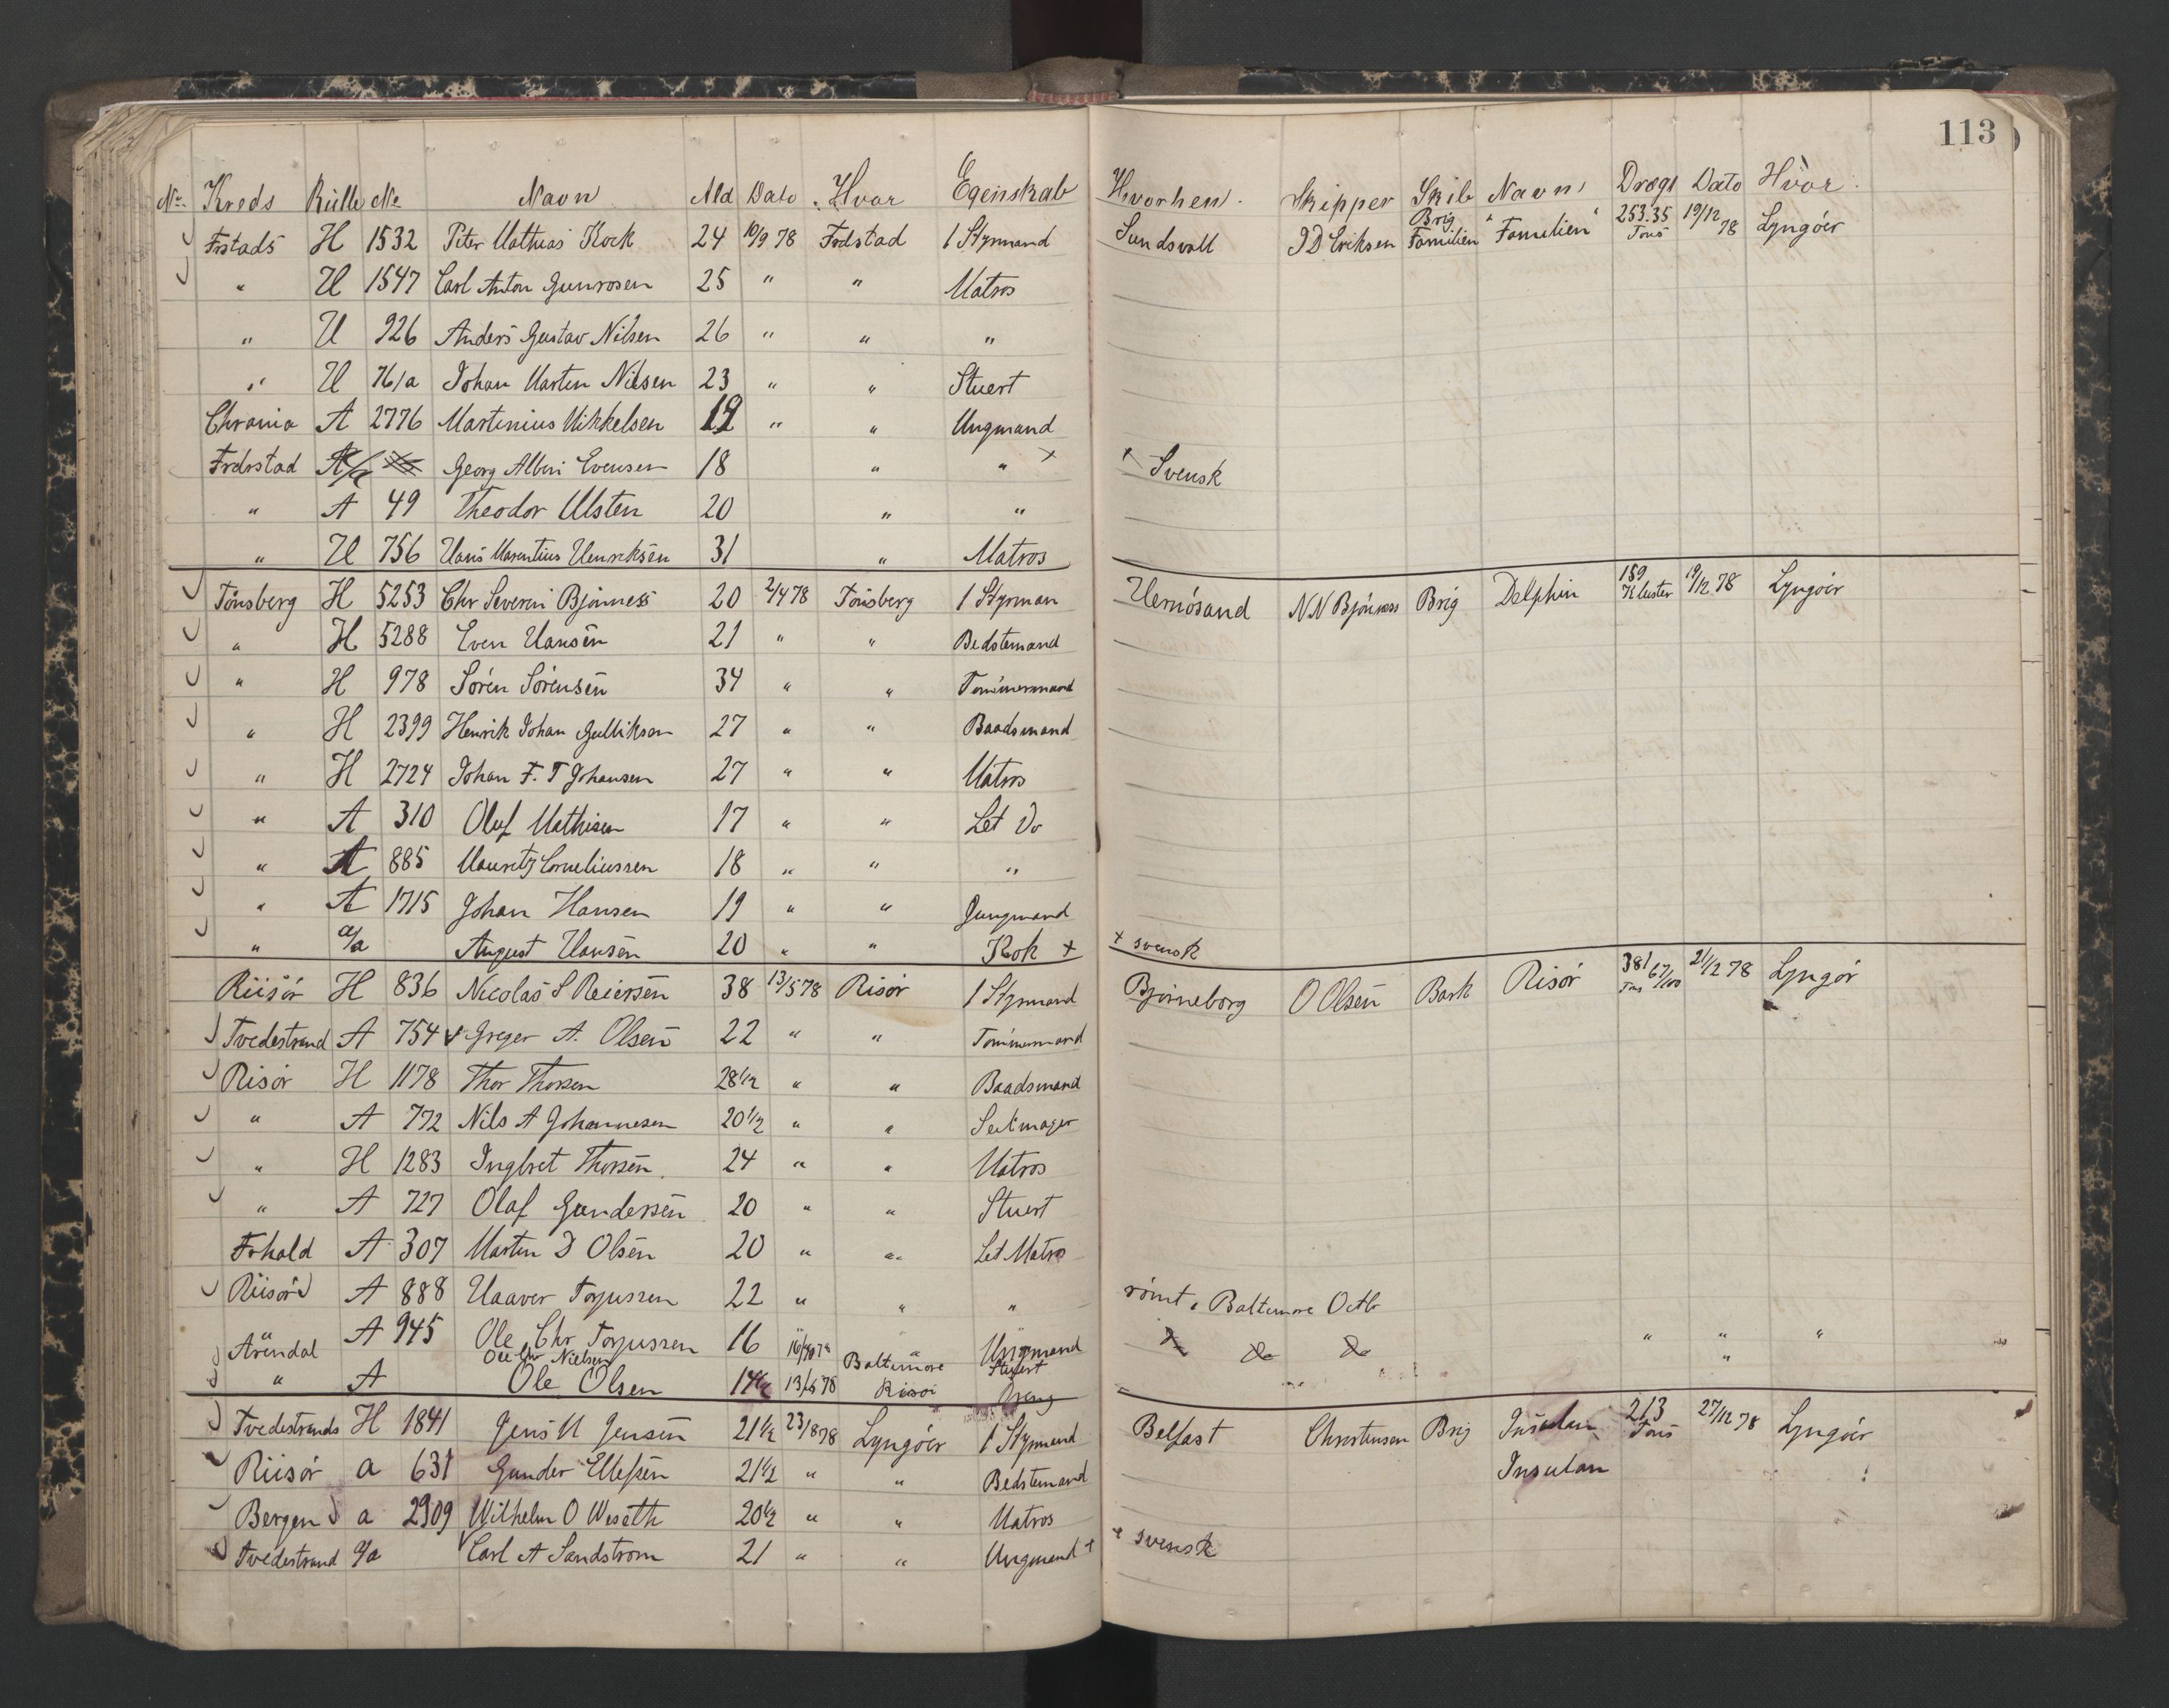 113
No Kreds Rülle No Navn Ald Dato Hvor Egenskab Hvorhen Skipper Skib Navn Drægt Dato Hvor
Frstads H 1532 Peter Mathias Kock 24 10/9 78 Frdstad 1 Styrmand Sundsvall J D Eriksen Brig Familien "Familien" 253.35 Tons 19/12 78 Lyngöer
" H 1547 Carl Anton Gunrosen 25 " " Matros
" H 926 Anders Gustav Nilsen 26 " " "
" H 761a Johan Martin Nilsen 23 " " Stuert
Chrania A 2776 Martinius Mikkelsen 19 " " Ungmand
Frdrstad Georg Albin Evensen 18 " " + + Svensk
" A 49 Theodor Ulsten 20 " "
" H 756 Hans Marentius Henriksen 31 " Matros
Tönsberg H 5253 Chr Severin Bjönness 20 2/4 78 Tönsberg 1 Styrman Hernösand N N Bjönness Brig Delphin 159 K luster 19/12 78 Lyngöer
" H 5288 Even Hansen 21 " " Bedstemand
" H 978 Sören Sörensen 34 " " Tömmermand
" H 2399 Henrik Johan Gulliksen 27 " " Baadsmand
" H 2724 Johan F. T Johansen 27 " " Matros
" A 310 Oluf Mathisen 17 " " Let Do
" A 885 Mauritz Corneliussen 18 " " "
" A 1715 Johan Hansen 19 " " Jungmand
" a/a August Hansen 20 " " Kok + + svensk
Riisör H 836 Nicolas S Reiersen 38 13/5 78 Risör 1 Styrmand Bjorneborg O Olsen Bark Risör 381 67/100 Tns 21/12 78 Lyngör
Tvedestrand A 754 Greger A. Olsen 22 " " Tömmermand
Risör H 1178 Thor Thorsen 28 1/2 " " Baadsmand
" A 772 Nils A Johannesen 20 1/2 " " Seilmager
" H 1283 Inglret Thorsen 24 " " Matros
" A 727 Olaf Gundersen 20 " " Stuert
Frhald A 307 Martin D Olsen 20 " " Let Matro
Riisör A 888 Haaver Torjussen 22 " " " römt. Baltimore Octbr
" A 945 Ole Chr Torjussen 16 " " Ungmand " " "
Arendal Ole Chr Nielsen Baltimore Stuert "
" A Ole Olsen 14 1/2 13/5 78 Risör Dreng
Tvedestrands H 1841 Jens N Jensen 21 1/2 23/8 78 Lyngöer 1 Stymand Belfast Christensen Brig Insulan 213 Tons 27/12 78 Lyngöer
Riisör a 631 Gunder Ellefsen 21 1/2 " " Bedstemand Insulan
Bergen a 2909 Wilhelm O Weseth 20 1/2 " " Matros
Tvedestrand a/a Carl A Sandstrom 21 " " Ungmand + + svensk